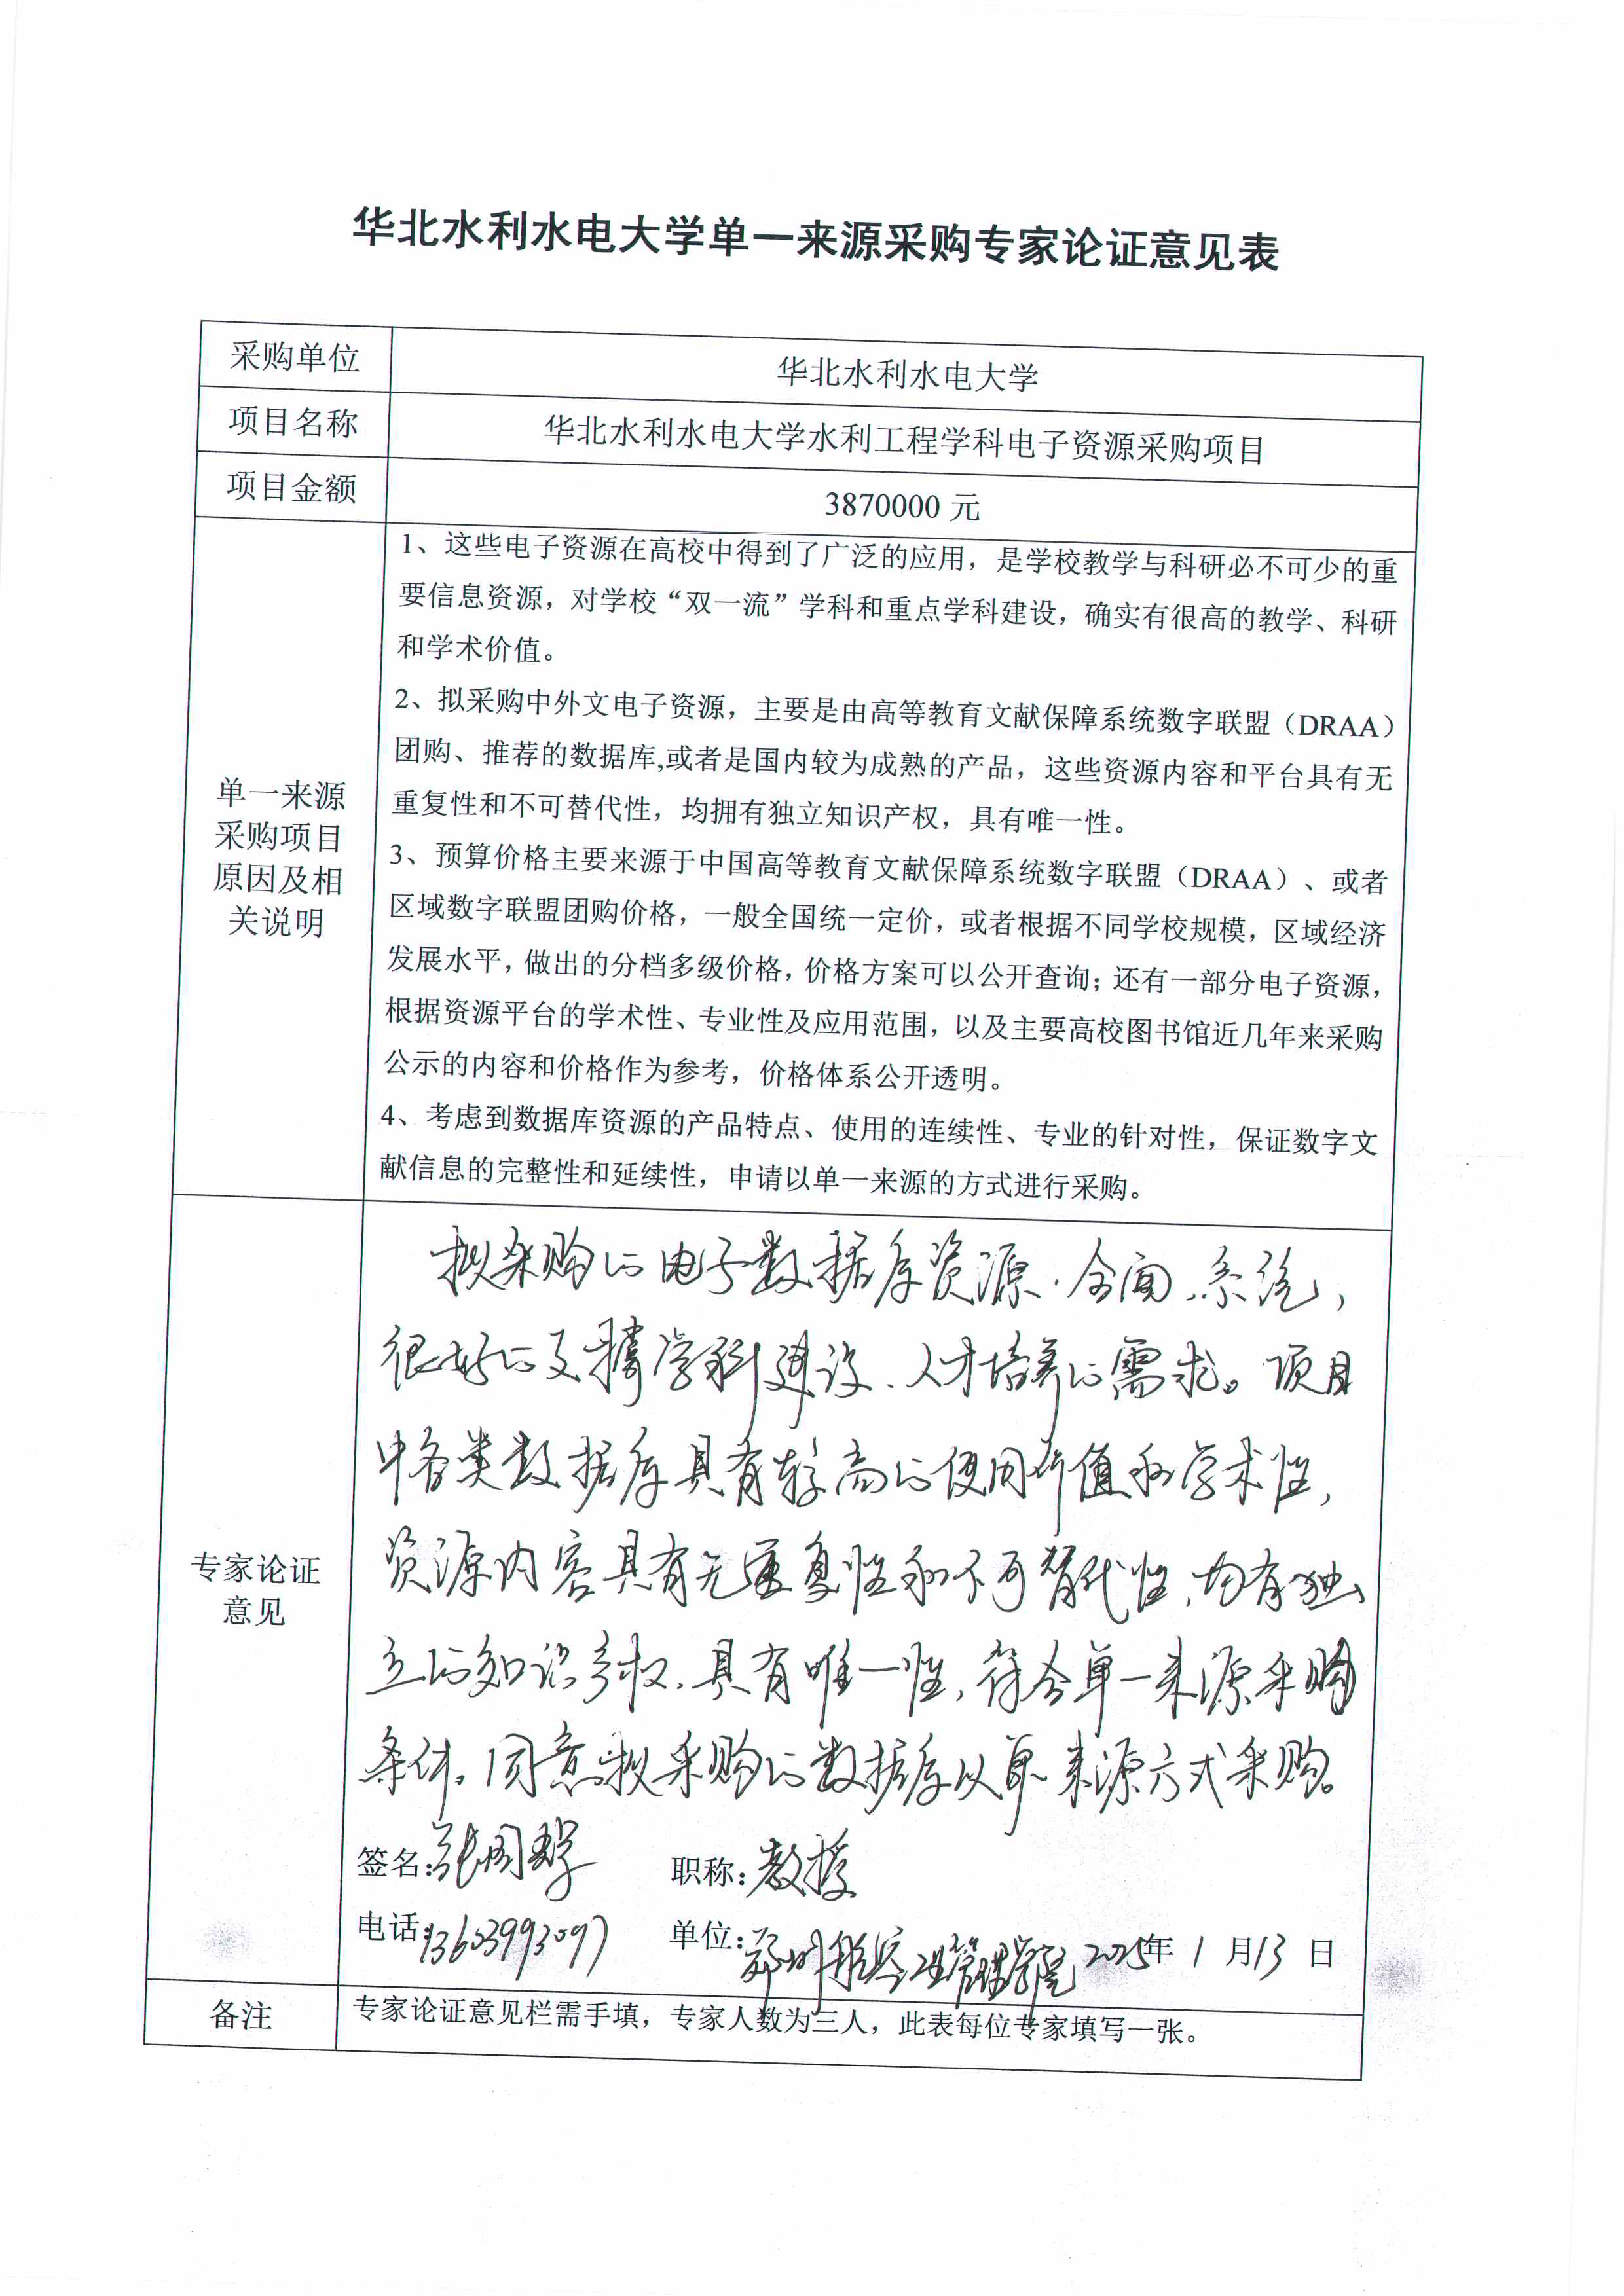 华北水利水电大学单一来源采购专家论证意见表
采购单位
华北水利水电大学
项目名称
华北水利水电大学水利工程学科电子资源采购项目
项目金额
3870000 元
单一来源
采购项目
原因及相
关说明
1、这些电子资源在高校中得到了广泛的应用，是学校教学与科研必不可少的重
要信息资源，对学校“双一流”学科和重点学科建设，确实有很高的教学、科研
和学术价值。
2、拟采购中外文电子资源，主要是由高等教育文献保障系统数字联盟（DRAA）
团购、推荐的数据库,或者是国内较为成熟的产品，这些资源内容和平台具有无
重复性和不可替代性，均拥有独立知识产权，具有唯一性。
3、预算价格主要来源于中国高等教育文献保障系统数字联盟（DRAA）、或者
区域数字联盟团购价格，一般全国统一定价，或者根据不同学校规模，区域经济
发展水平，做出的分档多级价格，价格方案可以公开查询；还有一部分电子资源，
根据资源平台的学术性、专业性及应用范围，以及主要高校图书馆近几年来采购
公示的内容和价格作为参考，价格体系公开透明。
4、考虑到数据库资源的产品特点、使用的连续性、专业的针对性，保证数字文
献信息的完整性和延续性，申请以单一来源的方式进行采购。
专家论证
意见
拟采购的电子数据库资源、全面、系统，
很好的支撑学科建设、人才培养的需求。项目
中各类数据库具有较高的使用价值和学术性，
资源内容具有无重复性和不可替代性，均有独
立的知识产权，具有唯一性，符合单一来源采购
条件。同意拟采购的数据库以单一来源方式采购。
签名： 职称：教授
电话：13603993097 单位：郑州航空工业管理学院 2025年 1 月13 日
备注
专家论证意见栏需手填，专家人数为三人，此表每位专家填写一张。